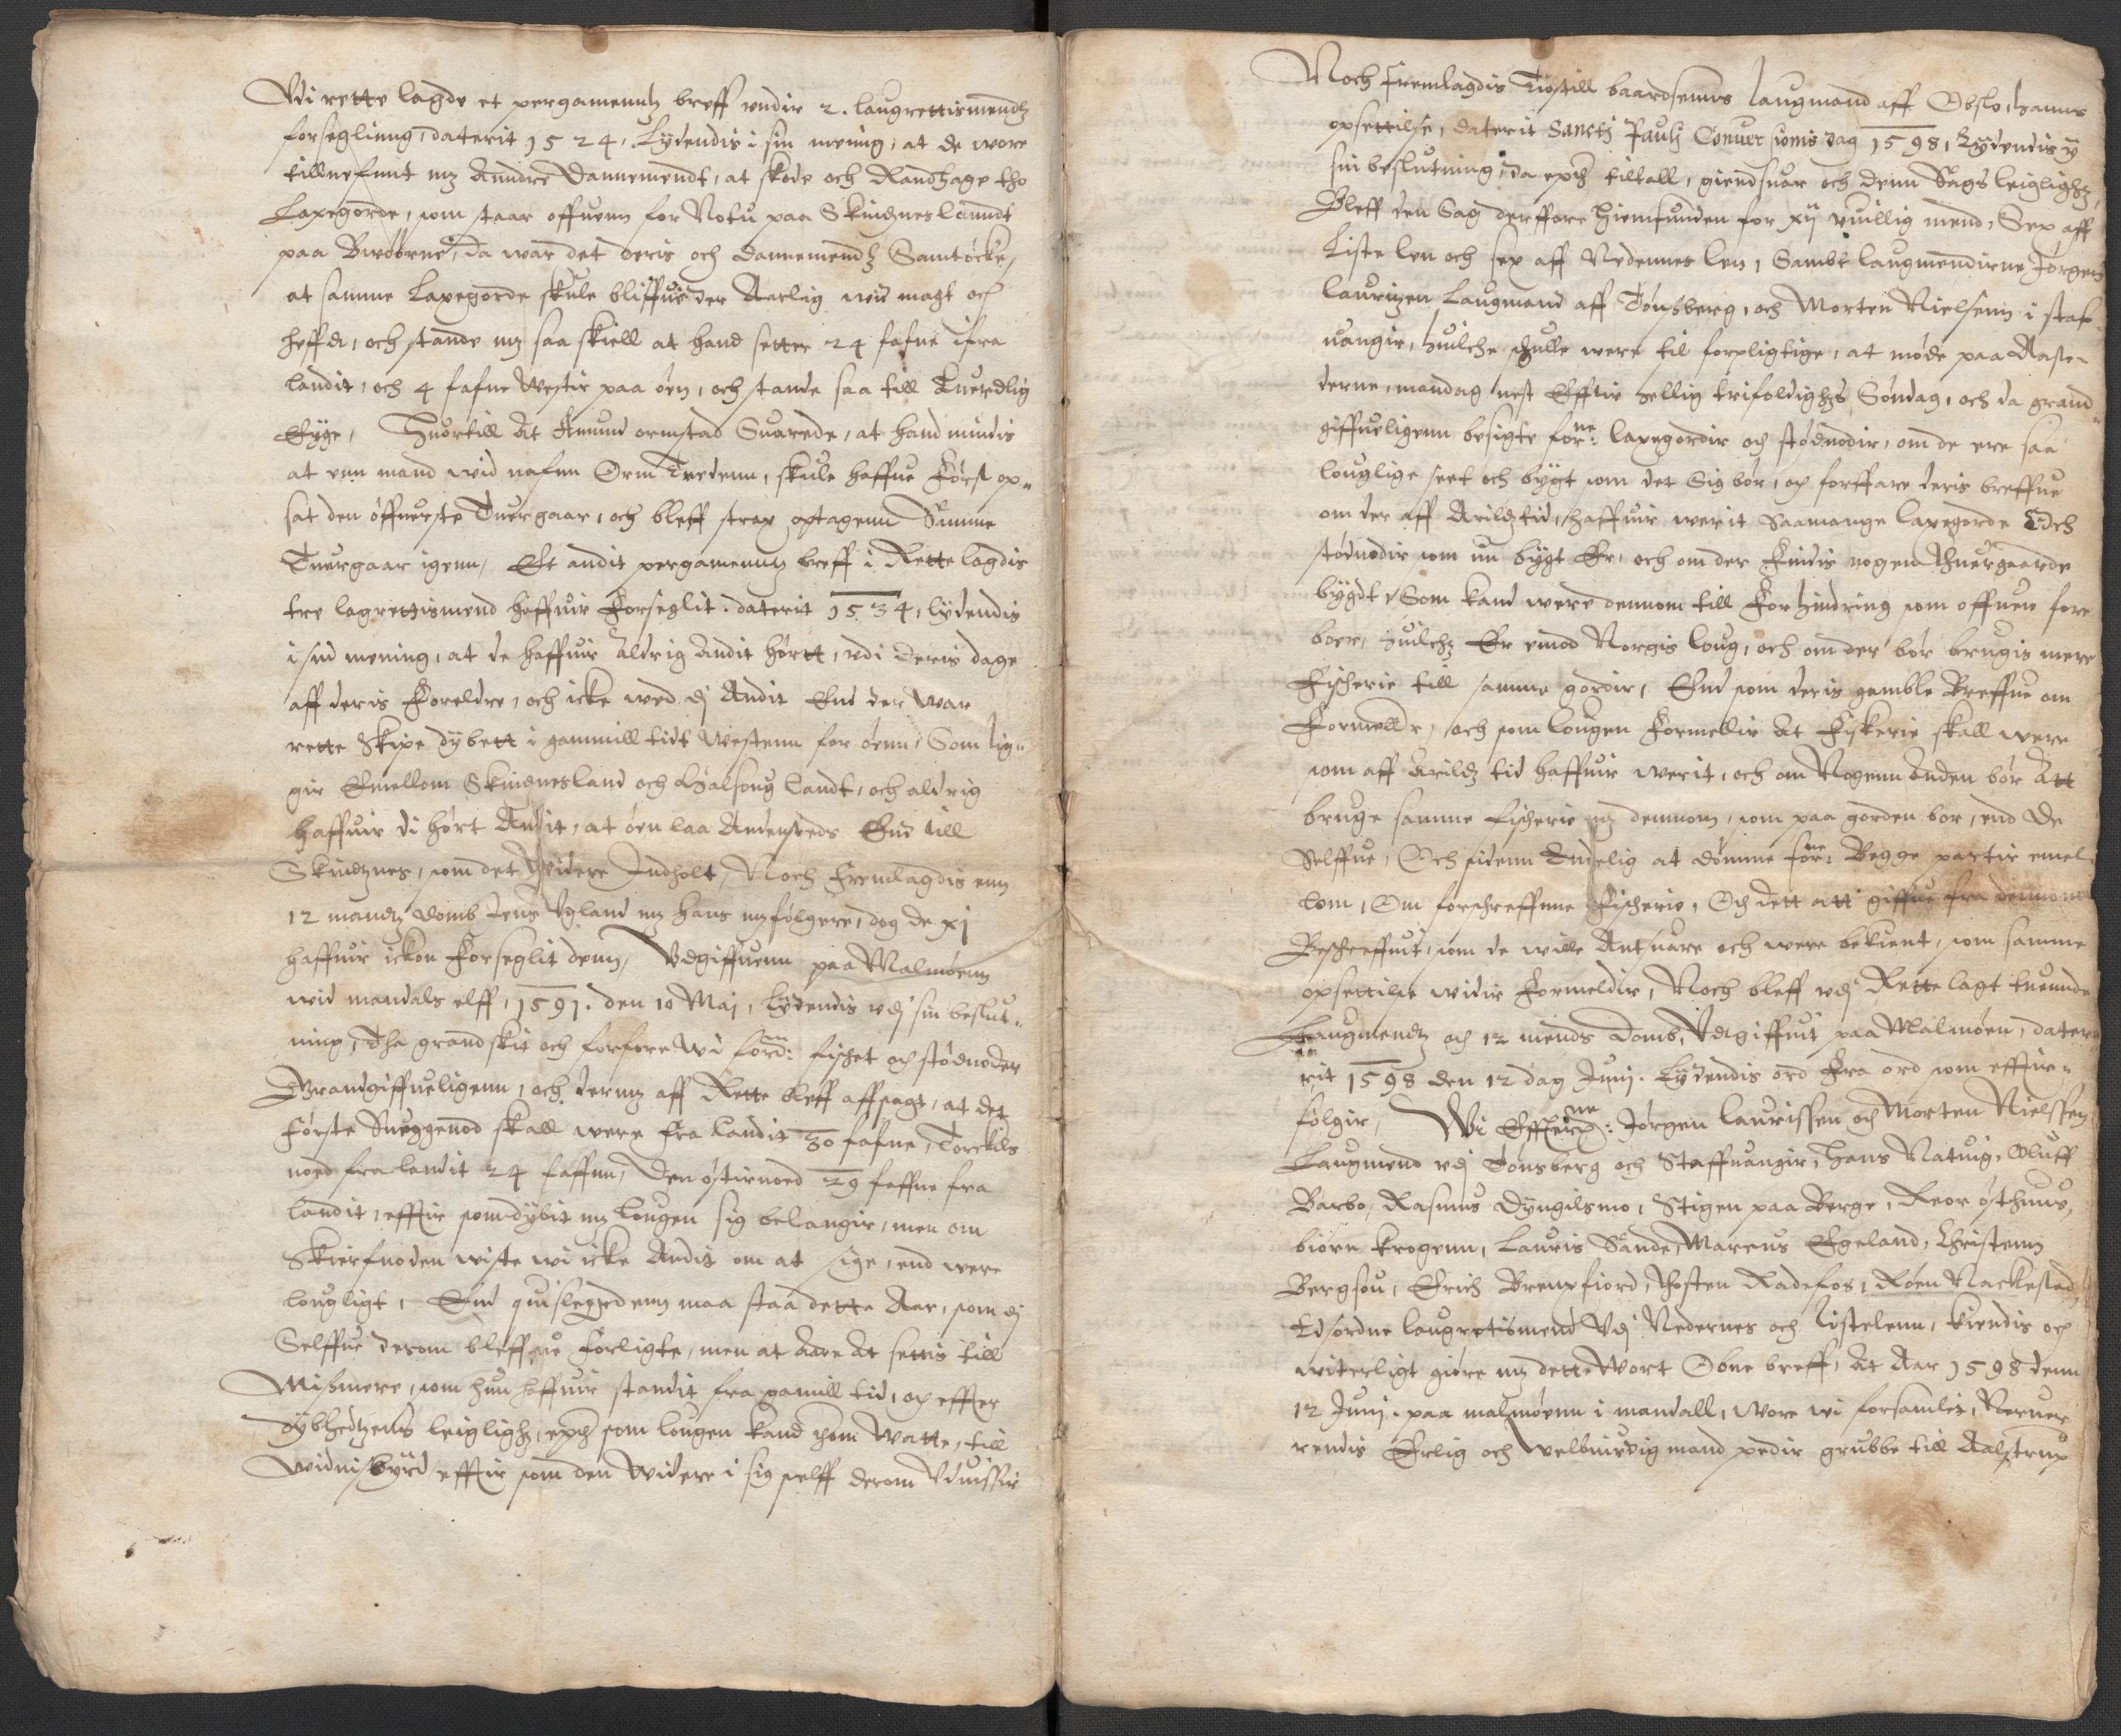 Vdi rette lagde et pergamentz breff vndir 2. laugrettismendtz
forseglinng, daterit 1524, Lydendis i sin mening, at de wore
tillnefnnt mz Anndre Dannemendt, at skode och Randsage tho
Laxegorde, som staar offuenn for Notu paa Skindneslanndt
paa da war det deris och dannemendtz Samtöcke,
at samme Laxegorde skule bliffue der Aarlig wid magt och
heffdt, och stande mz saa skiell at hand setter 24 fafne ifra
landit, och 4 fafne westir paa öen, och stande saa till Euerdlig
Eyge, Huortill At Amund ormstad Suarede, at hand mindis
at enn mand wid nafnn Orm Tuedenn, skule haffue Först op=
sat den öffuerste Tuergaar, och bleff strax optagenn Samme
Tuergaar igenn, Et andit pergamenntz breff i Rette lagdis
tre lagrettismend haffuir Forseglit. daterit 1534, lydendis
i sin mening, at de haffuir Aldrig Andit hörtt, vdi deris dage
aff deris Foreldre, och icke wed dj Andit End der war
rette Skipe dybett i gammill tidt westenn for öenn, Som lig=
gir Emellom Skindnesland och Halsoug landt, och aldrig
haffuir di hört Andit, at öen laa Andensteds End till
Skindtznes, som det widere Indholt, Noch Fremlagdis enn
12 mandtz domb Jens Vgland mz hans mzfölgere, dog de xj
haffuir icken Forseglit denn, Vdgiffuenn paa Malmöenn
wid mandals elff, 1591. den 10 Maj, Lydendis vdj sin beslut=
ning, Tha grandskit och forfore wi ford: fischet och stödnoder
Grandgiffueligenn, och dermz aff Rette bleff affsagt, at det
Förste Sneggenod skall were fra landit 30 fafne, Torckils
noed fra landit 24 faffnn, Den östirnoed 29 faffne fra
landit, effter som dybit mz lougen sig belangir, men om
Skierfnoden wiste wi icke Andit om at sige, end were
lougligt, End maa staa dette Aar, som dj
Selffue derom bleffue Forligte, men at Aare At settis till
Mismere, som hun haffuir standit fra gamill tid, och effter
dybhedtzens leiglighz, epth som lougen kand them watte, till
widnisbyrd effter som den widere i sig selff derom Vduisser

Noch Fremlagdis Tiöstill baardsenns laugmand aff Obslo, hanns
opsettilse, daterit Sanctj Paulj Conuersionis dag 1598, Lydendis y
sin beslutning, da epth tiltall, giendsuar och denn Sags leiglighz,
Bleff den Sag derffore Hiemfunden for xij vuillig mend, Sex aff
Liste len och sex aff Nedennes len, Sambt laugmendirne Jörgen
lauritzen laugmand aff Tönsberg, och Morten Nielsenn i staf=
uangir, huilche schulle were til forpligtige, at möde paa Aaste=
derne, mandag nest Efftir hellig trifoldighz Söndag, och da grand=
giffueligenn besigte forne: laxegordir och stödnodir, om de ere saa
louglige sett och bygt som det Sig bör, och forffare deris breffue
om der aff Arildz tid, haffuir werit Saamange laxegorde Och
stödnodir som nu bygt Er, och om der Findis nogen thuergaarde
bygdt, Som kand were dennom till Forhindring som offuen fore
boer, huilchz Er emod Norgis loug, och om der bör brugis mere
Fischerie till samme gordir, End som deris gamble Breffue om
Formelldr, och som lougen Formellir At Fiskerie skall were
som aff Arildz tid haffuir werit, och om Nogenn Anden bör Att
bruge samme fischerie mz dennom, som paa gorden bor, end de
Selffue, Och sidenn Endelig at dömme forne: Begge partir emel=
lom, Om forschreffnne Fischerie, Och dett att giffue fra dennom
Beschreffuit, som de wille Antsuare och were bekient, som samme
opsettilse widir Formeldir, Noch bleff vdj Rette lagt tuennde
Laugmendtz och 12 mends domb, Vdgiffuit paa Malmöen, date=
rit 1598 den 12 dag Junj. Lydendis ord Fra ord som effter=
fölgir, Wi Efftersne: Jörgen laurissen och Morten Nielssen
Laugmend vdj Tönsberg och Staffuangir, Hans Natuig, Oluff
Barbo, Rasmus Dyngilsmo, Stigen paa Berge, Reor östhuus,
biörn krogenn, Lauris Sande, Marcus Egeland, Christenn
Bergsou, Erich Brenfiord, Thosten Radefos, Röen Nackestad
Edsorne laugretismend Vdj Nedernes och listelenn, kiendis och
witerligt giöre mz dette wort Obne breff, At Aar 1598 denn
12 Junj. paa malmöenn i mandall, wore wi forsamlit, Neruer=
rendis Erlig och welbiurdig mand pedir grubbe till Aalstrup